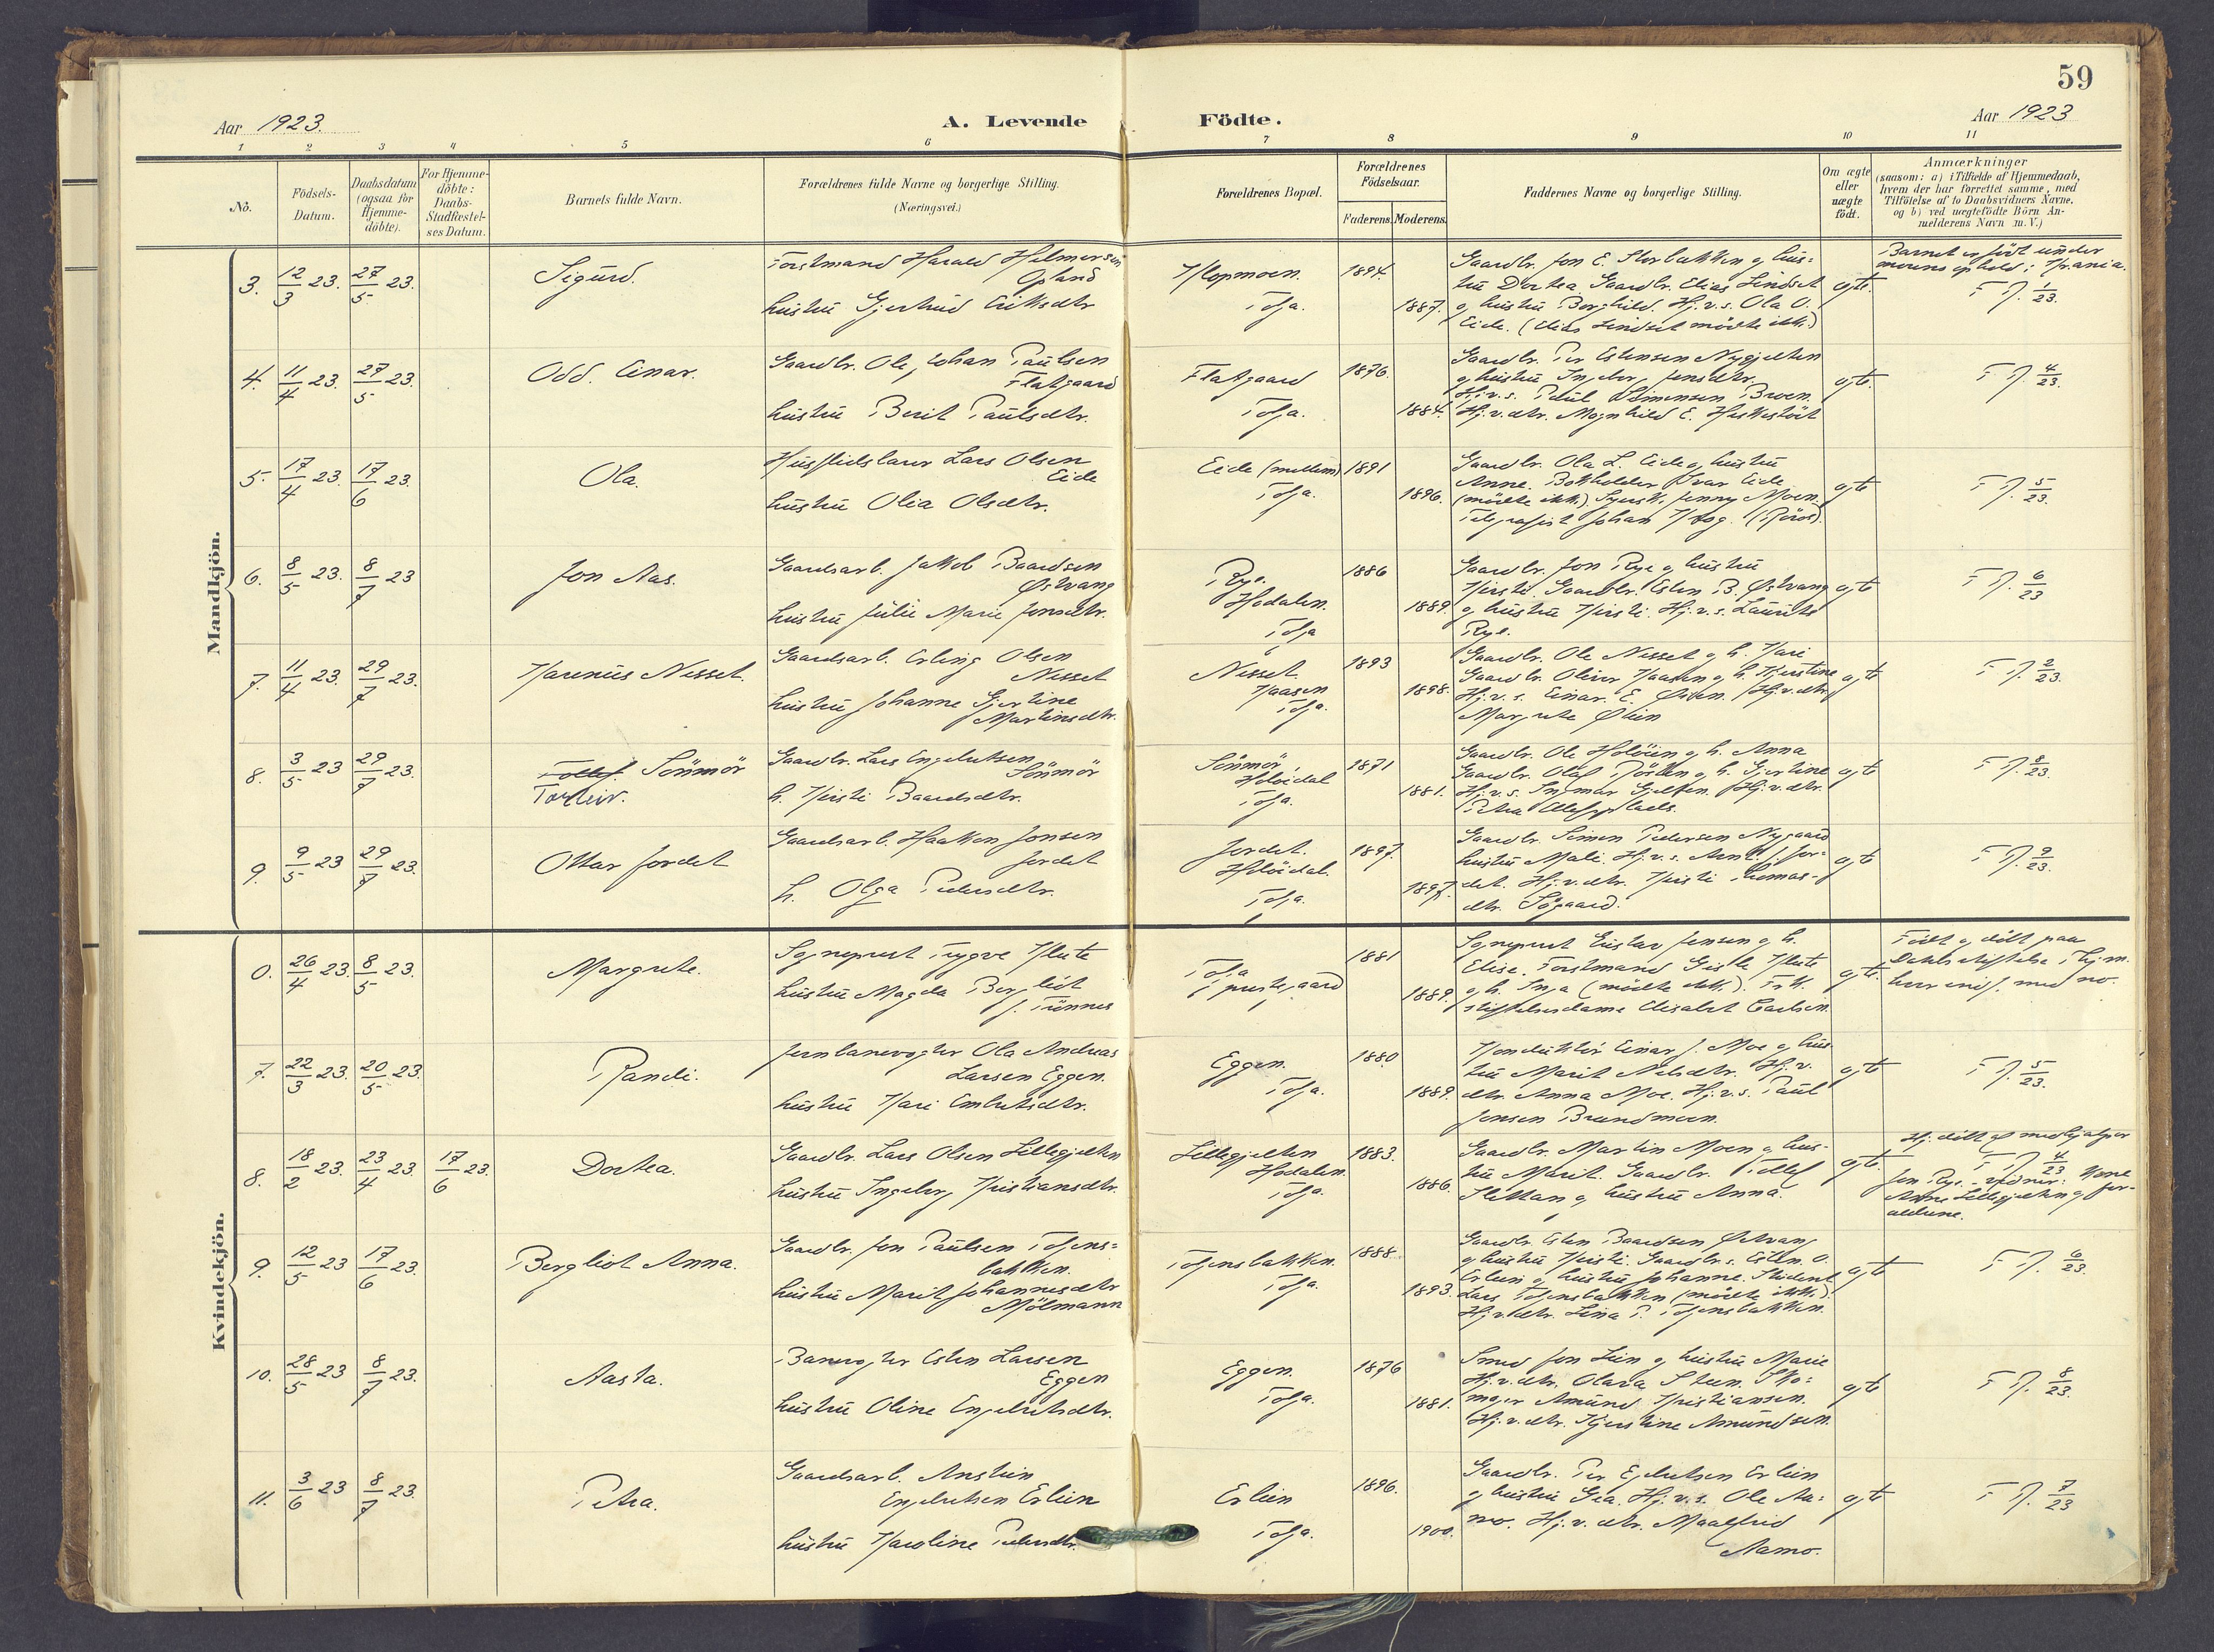 59
Aar 1923.
A. Levende Födte.
Aar 1923
1 2 3 4 5 6 7 8 9 10 11
No.
Födsels-Datum.
Daabsdatum (ogsaa for Hjemme-döbte).
For Hjemme-döbte: Daabs-Stadfestel-ses Datum.
Barnets fulde Navn.
Forældrenes fulde Navne og borgerlige Stilling.
(Næringsvei.)
Forældrenes Bopæl.
Forældrenes Födselsaar.
Faderens. Moderens.
Faddernes Navne og borgerlige Stilling.
Om ægte eller uægte födt.
Anmærkninger
(saasom: a) i Tilfælde af Hjemmedaab,
hvem der har forrettet samme, med
Tilföielse af to Daabsvidners Navne,
og b) ved uægtefödte Börn An-
melderens Navn m. V.)
Mandkjön.
3. 12/3 23. 27/5 23. Sigurd.
Forstmand Harald Hilmersen
Opland
hustru Gjertrud Eriksdtr
Klopmoen.
Tolga.
1894. 1887.
Gaardbr. Jon E. Storbakken og hus-
tru Dortea. Gaardbr. Elias Lindset
og hustru Borghild. Hj.v.s. Ola O.
Eide. (Elias Lindset mödte ikke.)
ægte.
Barnet er födt under
morens ophold i Kr.ania.
F. P. 1/23.
4. 11/4 23. 27/5 23. Odd. Einar.
Gaardbr. Ole Johan Paulsen
Flatgaard
hustru Berit Paulsdtr.
Flatgaard
Tolga.
1876. 1884.
Gaardbr. Per Estensen Nygjelten
og hustru Ingebor Jensdtr.
Hj.v.s. Paul Simensen Broen.
Hj.v.dtr. Magnhild E.
ægte.
F. P. 4/23.
5. 17/4 23. 17/6 23. Ola.
Husflidslærer Lars Olsen
Eide
hustru Olia Olsdtr.
Eide (mellem)
Tolga.
1891 1896.
Gaardbr. Ola L. Eide og hustru
Anne. Bokholder Ivar Eide
(mödte ikke). Jenny Moen.
Telegrafist Johan Krog. (Röros).
ægte
F. P. 5/23.
6. 8/5 23. 8/7 23 Jon Aas.
Gaardsarb. Jakob Baardsen
Østvang
hustru Julie Marie Jonsdtr.
Rye.
Hodalen.
Tolga
1886 1889.
Gaardbr. Jon Rye og hustru
Kirsti. Gaardbr. Esten B. Østvang
og hustru Kirsti. Hj.v.s. Laurits
Rye.
ægte
F. P. 6/23
7. 11/4 23. 29/7 23. Harenius Nesset.
Gaardsarb. Erling Olsen
Nesset
hustru Johanne Gjertine
Martinsdtr.
Nesset
Kaasen
Tolga.
1893 1898.
Gaardbr. Ole Nesset og h. Kari
Gaardbr. Oliver Kaasen og h. Kjerstine
Hj.v.s. Einar. E. Øien. Hj.v.dtr.
Margrete Øien
ægte
F. P. 2/23.
8. 3/5 23 29/7 23. Tollef. Sömmör
Torleiv.
Gaardbr. Lars Engebretsen
Sömmör
h. Kirsti Baardsdtr.
Sömmör,
Holöidal
Tolga.
1871 1881.
Gaardbr. Ole Holöien og h. Anna
Gaardbr. Olaf og h. Gjertine
Hj.v.s. Ingmar Gjelten. Hj.v.dtr.
Petra
ægte
F. P. 8/23.
9. 9/5 23 29/7 23. Ottar Jordet
Gaardsarb. Haakon Jonsen
Jordet
h. Olga Pedersdtr.
Jordet.
Holöidal.
Tolga.
1897. 1897.
Gaardbr. Simen Pedersen Nygaard
hustru Mali. Hj.v.s. Arnt J. Jor-
det. Hj.v.dtr. Kirsti Thomas-
dtr. Sögaard.
ægte
F. P. 9/23.
Kvindekjön.
0. 26/4 23. 8/5 23. Margrete.
Sogneprest Trygve Klute
hustru Magda Bergliot
f. Tönnes
Tolga
prestegaard
1881 1889.
Sogneprest Gustav Jensen og h.
Elise. Forstmand Gisle Klute
og h. Inga (mödte ikke). Frk.
stiftelsesdame Elisabet Carlsen.
ægte.
Födt og döbt paa
her indf. med no.
7. 22/3 23. 20/5 23. Randi.
Jernbanevogter Ola Andreas
Larsen Eggen.
hustru Kari Embretsdtr.
Eggen.
Tolga.
1880 1889.
Konduktör Einar J. Moe og hus-
tru Marit Nilsdtr. Hj.v.
dtr. Anna Moe. Hj.v.s. Paul
Jonsen Brendmoen.
ægte
F. P. 5/23.
8. 18/2 23. 23/4 23. 17/6 23. Dortea.
Gaardbr. Lars Olsen Lillegjelten
hustru Ingeborg Kristiansdtr.
Lillegjelten
Hodalen.
Tolga.
1883. 1886.
Gaardbr. Martin Moen og hus-
tru Marit. Gaardbr. Tollef
Sletten og hustru Anna.
ægte.
Hj. döbt af medhjælper
F. P. 4/23
Jon Rye. - vidner: Kone
Anne Lillegjelten og for-
ældrene.
9. 12/5 23 17/6 23. Bergliot Anna.
Gaardbr. Jon Paulsen Tolgens-
bakken.
hustru Marit Johannesdtr
Mölmann
Tolgensbakken.
Tolga.
1888. 1893.
Gaardbr. Esten Baardsen Østvang
og hustru Kirsti. Gaardbr.s. Esten O.
Erlien og hustru Johanne. Student
Lars Tolgensbakken (mödte ikke).
Hj.v.dtr. Lina P. Tolgensbakken.
ægte
F. P. 6/23.
10. 28/5 23 8/7 23. Aasta.
Banevogter Esten Larsen
Eggen
hustru Oline Engebretsdtr.
Eggen.
Tolga.
1876 1881.
Smed Jon Lien og hustru Marie
Hj.v.dtr. Olava Steen. Sko-
mager Amund Kristiansen.
Hj.v.dtr. Kjerstine Amundsen.
ægte
F. P. 8/23.
11. 3/6 23 8/7 23. Petra.
Gaardsarb. Anstein
Engebretsen Erlien
hustru Karoline Pedersdtr.
Erlien
Tolga.
1896. 1900.
Gaardbr. Per Egebretsen Erlien
og hustru Gea. Hj.v.s. Ole Aa-
mo. Hj.v.dtr. Maalfrid
Aamo.
ægte
F. P. 7/23